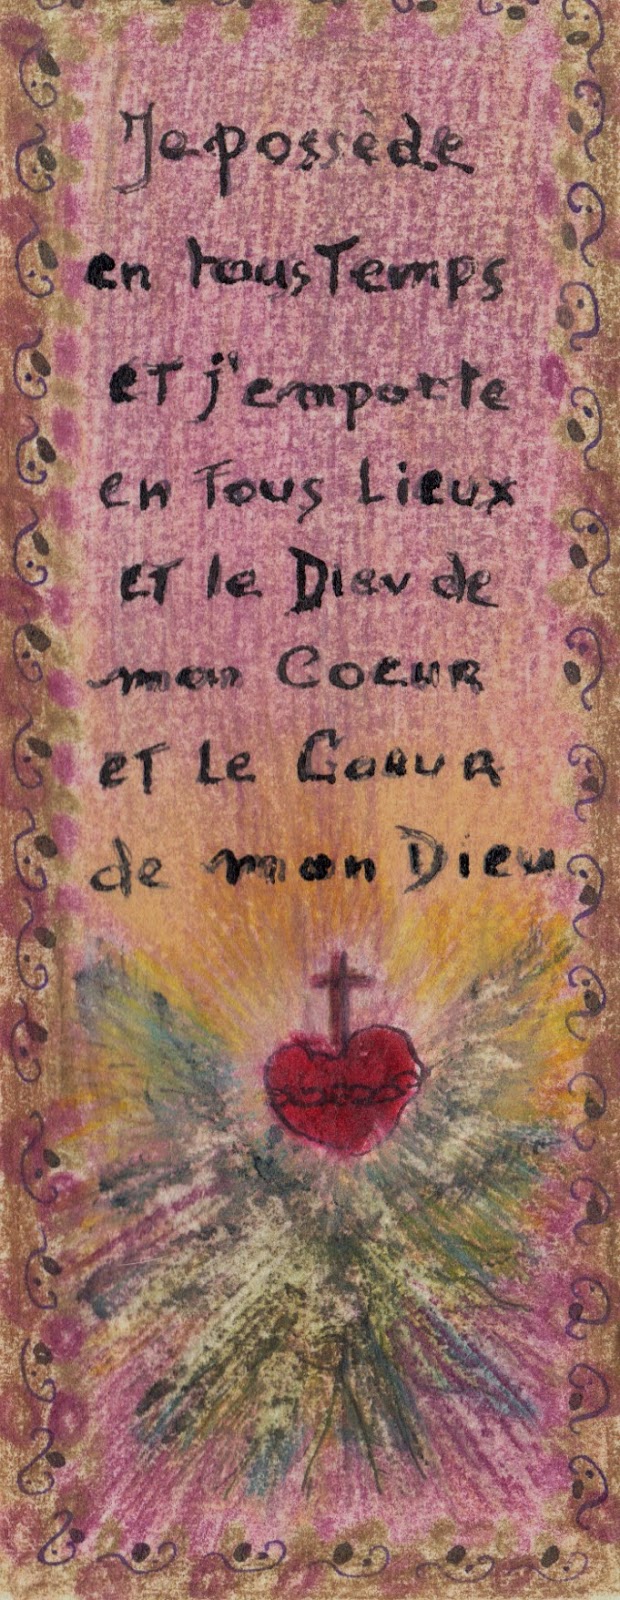 Je possède
en tous Temps
et j'emporte
en Tous Lieux
et le Dieu de
mon COEUR
et Le Coeur
de mon Dieu